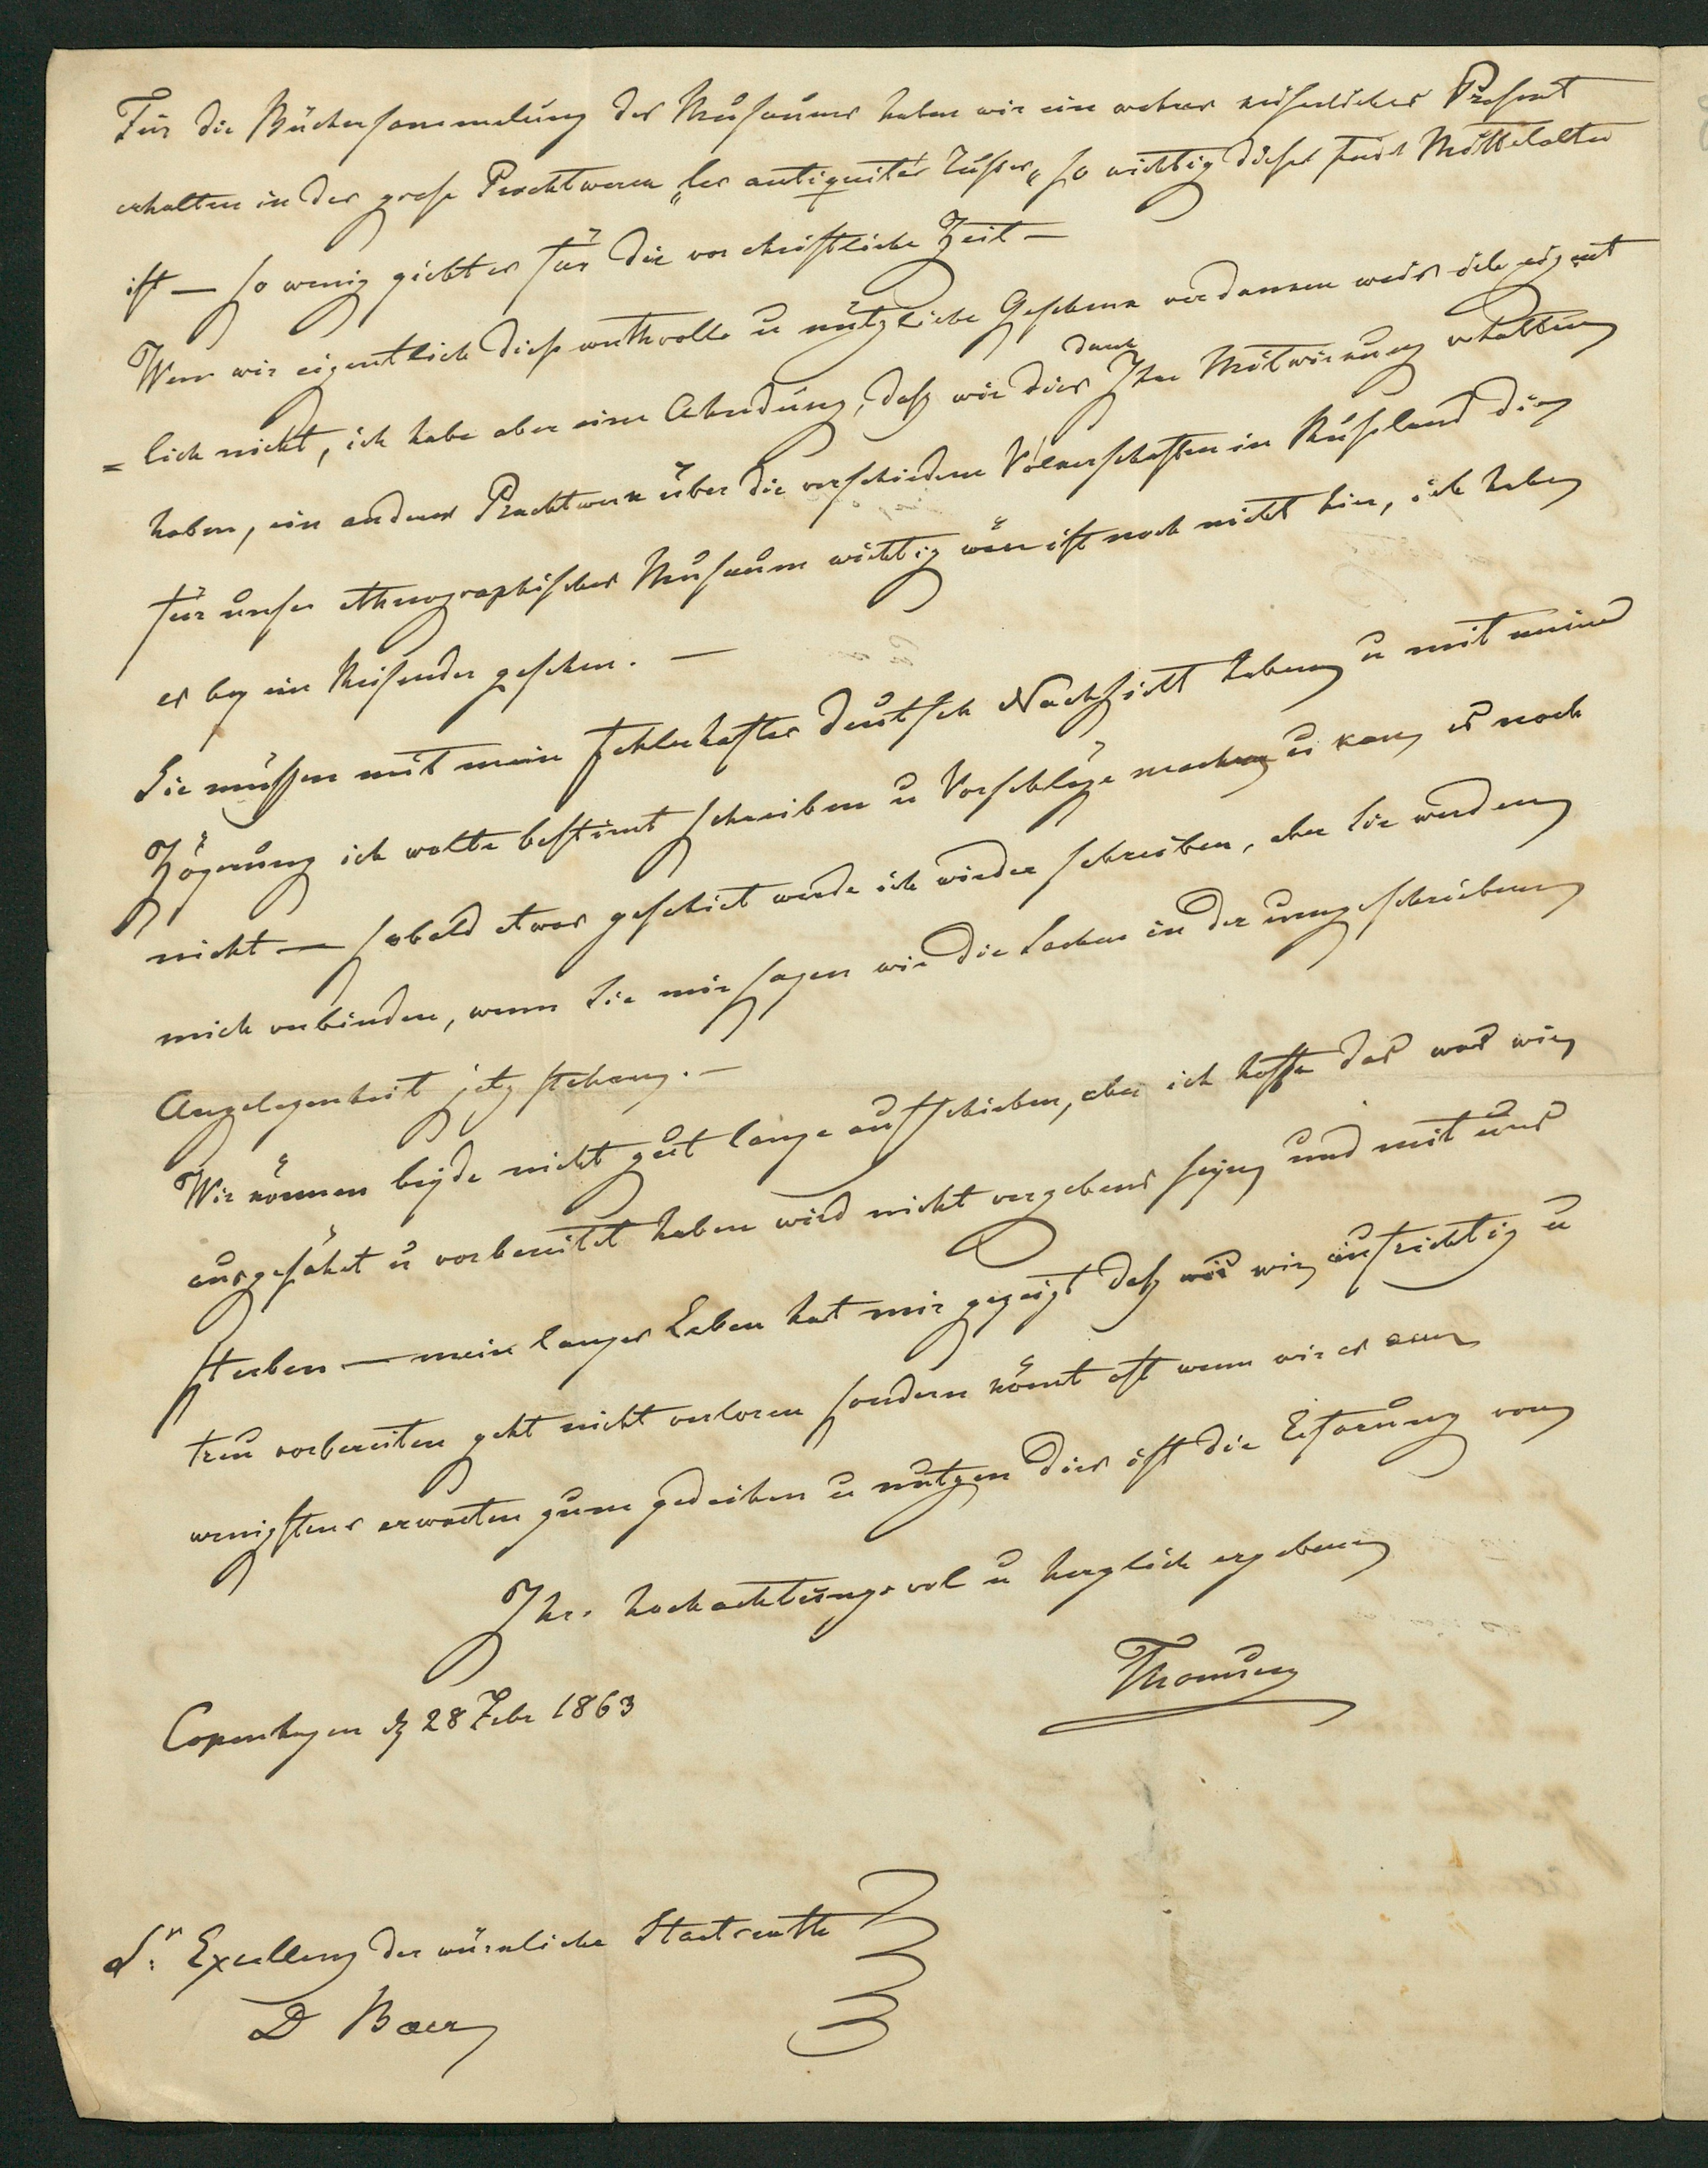 Für die Büchersammelung des Museums haben wir ein wahres kaiserliches Present
erhalten in der grose Prachtwerck „les antiquités Russes„ so wichtig dieses fürs Mittelalter
ist — so wenig giebt es für die vorchristliche Zeit —
Wem wir eigentlich dies werthvolle u nützliche Geschenk verdanken weis ich eigent
= lich nicht, ich habe aber eine Ahndung, daß wir dies dank Ihre Mitwirkung erhalten
haben, ein anderes Prachtwerk über die verschiedene Völkerschaften in Rusland die
für unser ethnographisches Museum wichtig wäre ist noch nicht hier, ich habe
es bey ein Reisender gesehen. —
Sie müssen mit mein fehlerhaftes deutsch Nachsicht haben u mit meine
Zögerung ich wolte bestimt schreiben u Vorschläge machen u kan es noch
nicht — sobald etwas geschict werde ich wieder schreiben, aber Sie werden
mich verbinden, wenn Sie mir sagen wie die Sachen in der umgeschriebene
Angelegenheit jetz stehen. —
Wir können beyde nicht gut lange aufschieben, aber ich hoffe das was wir
ausgesäht u vorbereitet haben wird nicht vergebens seyn und mit uns
sterben — mein langes Leben hat mir gezeigt daß was wir aufrichtig u
treu vorbereiten geht nicht verloren sondern kömt oft wenn wir es am
wenigstens erwarten zum gedeihen u nutzen dies ist die Erfarung von
Ihr. hochachtungsvol u herzlich ergebenen
Thomsen
Copenhagen d 28 Febr 1863
Sr. Excellenz der würkliche Staatsrath
D Baer